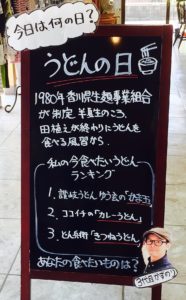 今日は何の日?
うどんの日
1980年香川県生麺事業組合
が制定。半夏生のころ、
田植えが終わりにうどんを
食べる風習から。
私の今食べたいうどん
ランキング
1. 讃岐うどん
2. ココイチの「カレーうどん」
3. どん兵衛「きつねうどん」
あなたの食べたいものは?
3代目かずのり